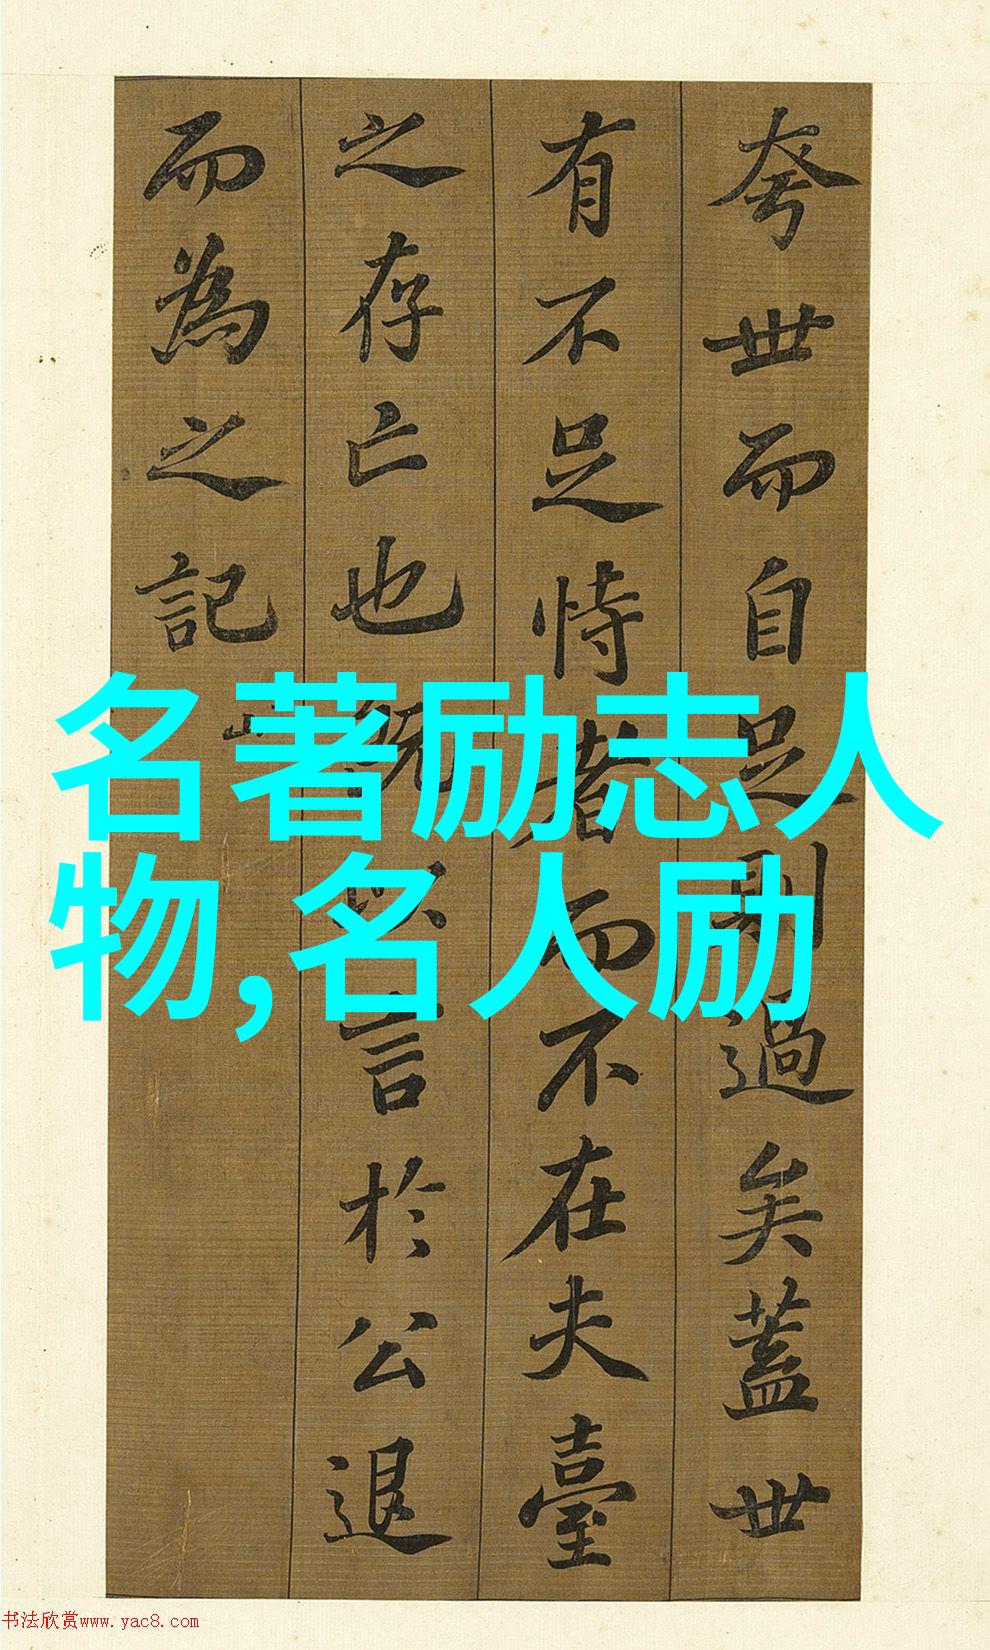 夸世而自足則過矣蓋世
有不足恃者而不在夫臺
之存亡也既以言於公退
而為之記
名著励志人
物,名人励
书法欣赏www.yac8.com